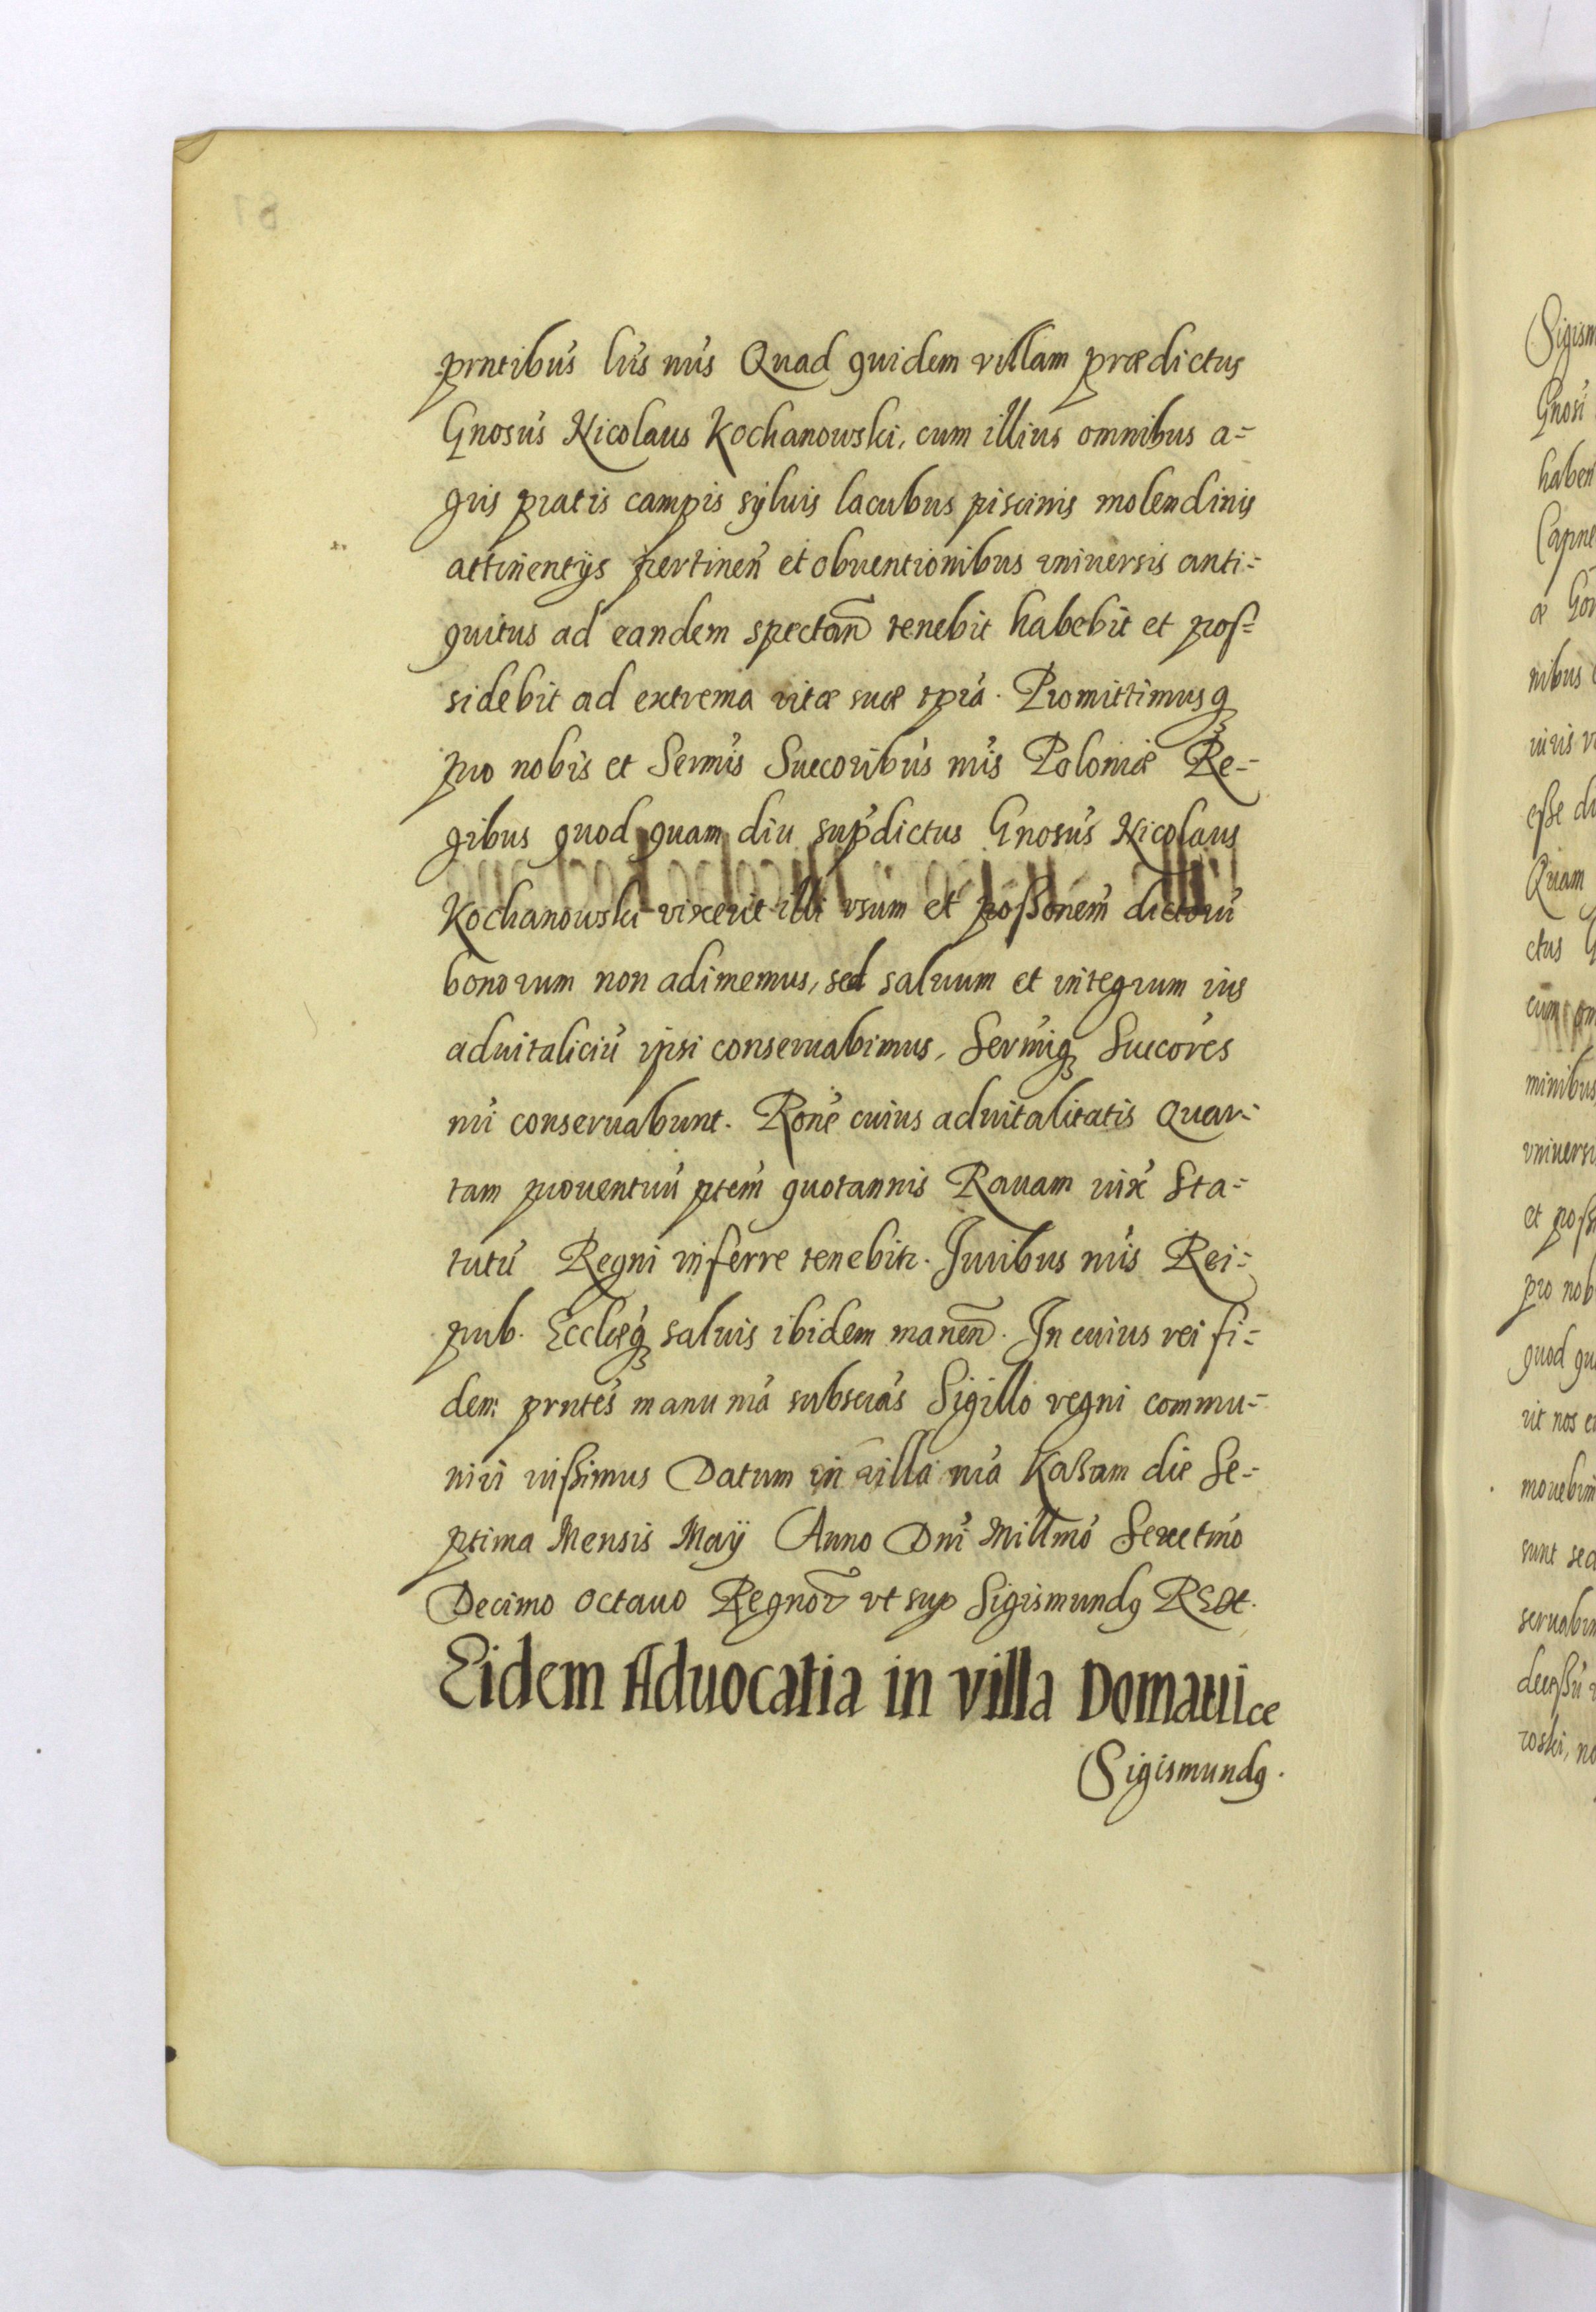 prntibús lris nris Quad quidem villam prædictus
Gnosús Nicolaus Kochanowski, cum illius omnibus a=
gris pratis campis syluis lacubus piscinis molendinis
attinentÿs pertineñ et obuentionibus vniuersis anti=
quitus ad eandem spectañ tenebit habebit et pos=
sidebit ad extrema vitæ suæ tpra. Promittimusq
pro nobis et Sermis Succoribús nris Poloniæ Re=
gibus quod quam diu supdictus Gnosús Nicolaus
Kochanowski vixerit illi vsum et possonem dictorú
bonorum non adimemus, sed saluum et integrum ius
aduitaliciú ipsi conseruabimus, Sermiq Succores
nri conseruabunt. Rone cuius aduitalitatis Quar=
tam prouentuú ptem quotannis Rauam iux Sta=
tutú Regni inferre tenebitr. Iuribus nris Rei=
pub. Eccleq saluis ibidem maneñ. In cuius rei fi=
dem prntes manu nra subscras Sigillo regni commu=
niri iussimus Datum in villa nra Kassam die Se=
ptima Mensis Maÿ Anno Dni Millmo Sexctmo
Decimo octauo Regnor vt sup Sigismundq Rex.
Eidem Aduocatia in villa Domauice
Sigismundq.